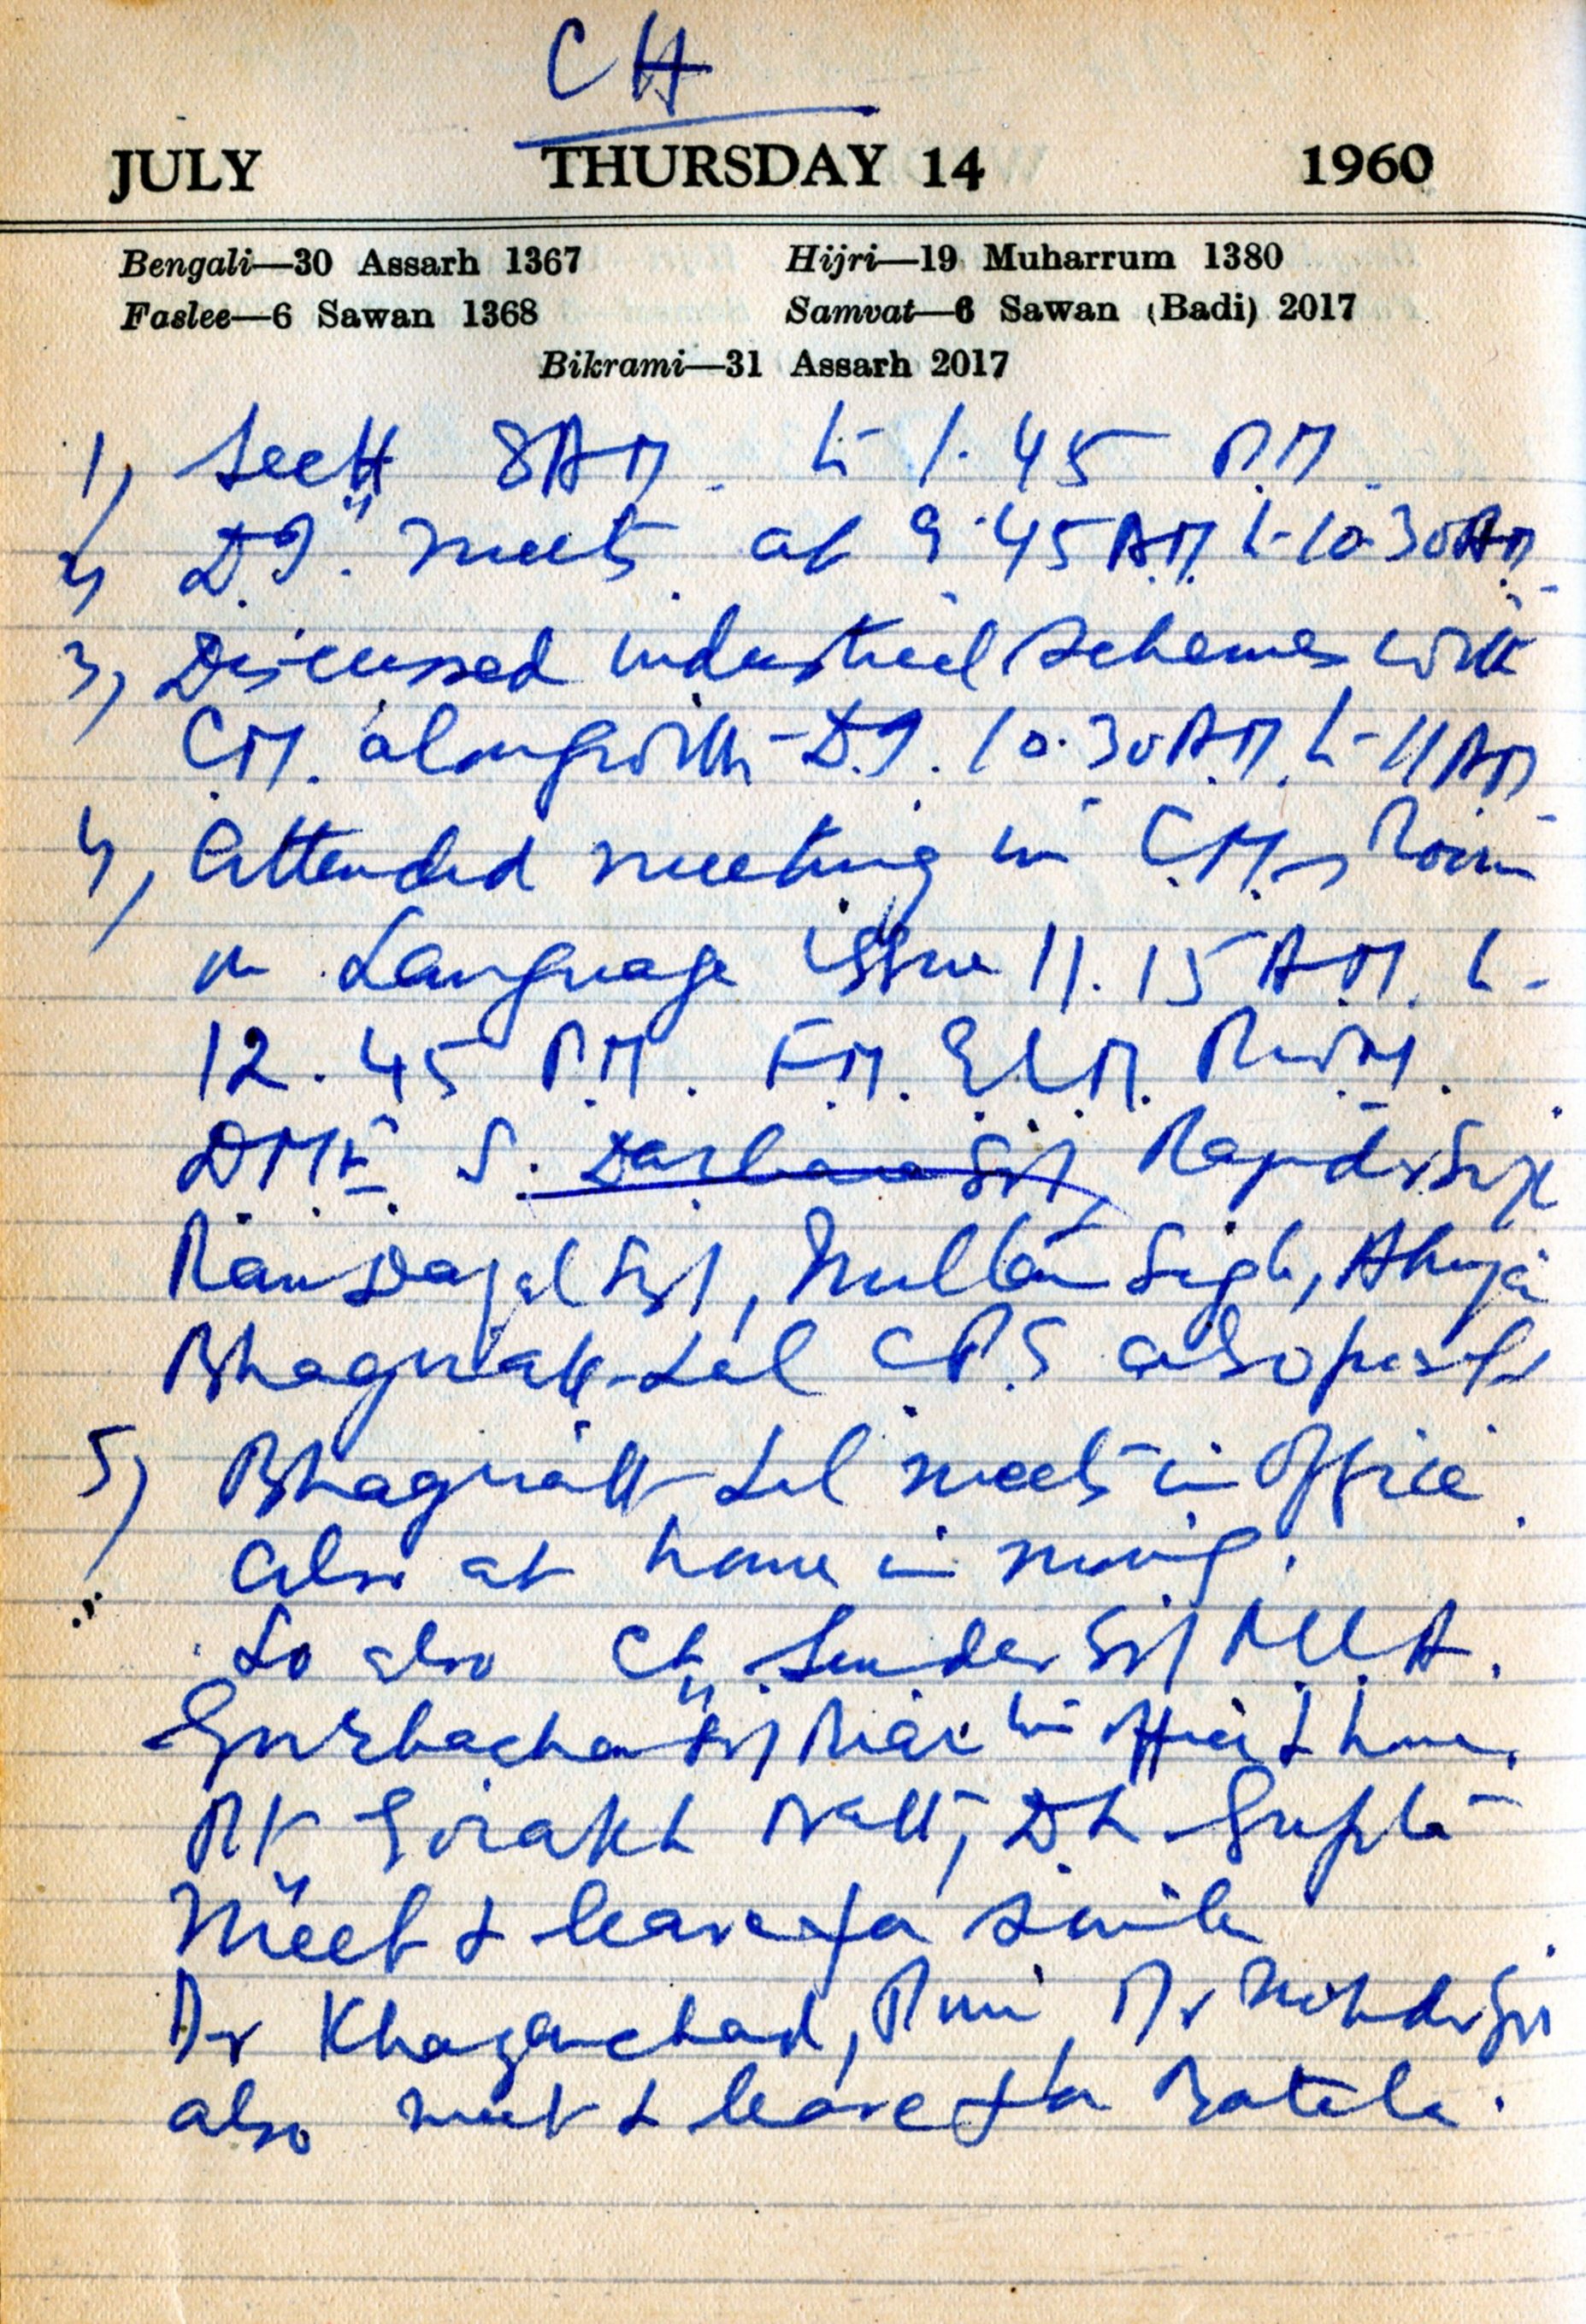 CH
JULY THURSDAY 14 1960
Bengali—30 Assarh 1367 Hijri—19 Muharrum 1380
Faslee—6 Sawan 1368 Samvat—6 Sawan (Badi) 2017
Bikrami—31 Assarh 2017
1) Sectt 8 AM. to 1.45 P.M.
2) D.I. meets at 9.45 A.M. to 10.30 AM
3) Discussed industrial schemes with
C.M. alongwith D.I. 10.30 A.M. to 11 AM
4) Attended meeting in C.M.s Room
on Language issue 11.15 A.M. to
12.45 P.M. F.M. E&LM. PWM.
S. Darbara Singh,
Ram Dayal Singh, Multan Singh, Ahuja
Bhagirath Lal CPS also
5) Bhagirath Lal meets in Office
also at home in morning.
So also Ch. Sunder Singh MLA.
Gurbachan Singh in office & home.
Gorakh Nath, Gupta
Meet & leave for Simla
Dr Khazanchand, Mohinder Singh
also meet & leave for Batala.